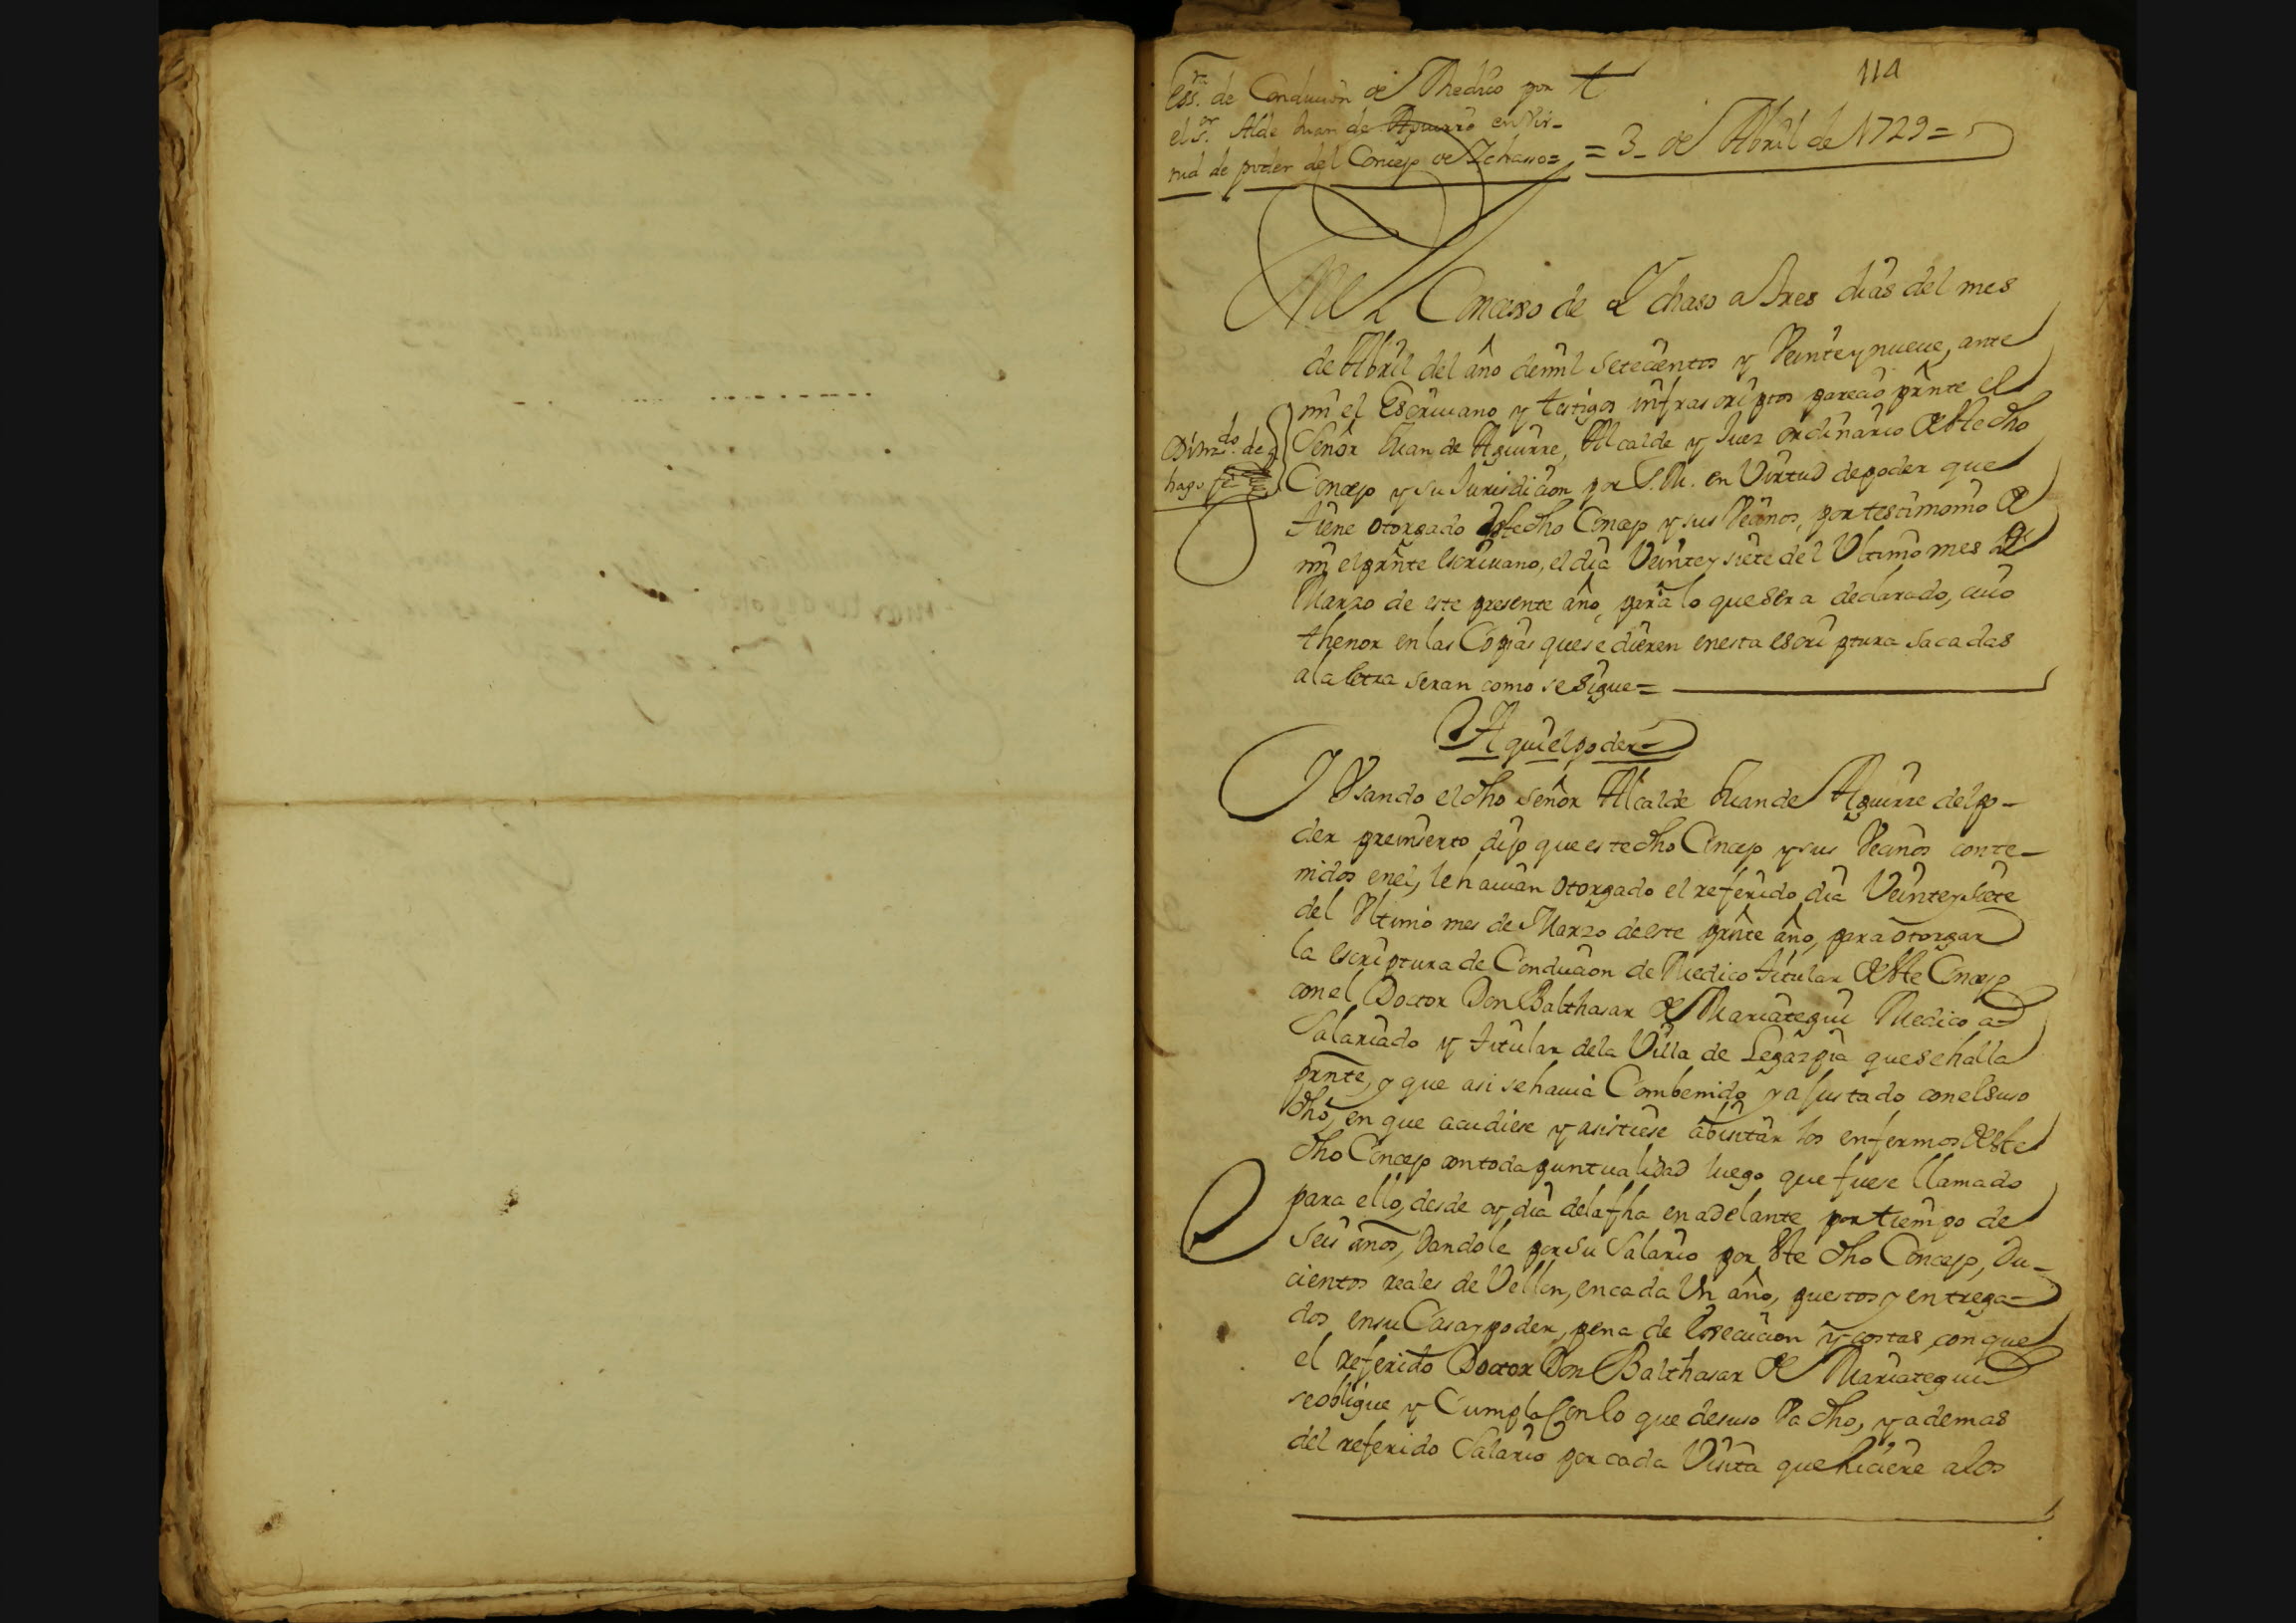 114
Essra. de Conducion de Medico por t
el Sor. Alde Juan de Aguirre en Vir-
tud de poder del Concejo de Ichasso=
= 3 - de Abril de 1729 =
En el Concejo de Ychaso a tres dias del mes
de Abril del año de mil setecientos y Veinte y nueue, ante
mi el Escriuano y testigos infrascriptos parecio prnte el
Señor Juan de Aguirre, Alcalde y Juez ordinario deste dho
Concejo y su Jurisdicion por S.M. en Virtud de poder que
tiene otorgado este dho Concejo y sus Vecinos, por testimonio de
mi el prnte escriuano, el dia Veinte y siete del Ultimo mes de
Marzo de este presente año, para lo que sera declarado, cuio
thenor en las Copias que se dieren en esta escriptura sacadas
a la letra seran como se sigue =
do. de
hago fe
Aqui el poder
Y Usando el dho señor Alcalde Juan de Aguirre del po-
der preinserto, dijo que este dho Concejo y sus Vecinos conte-
nidos en el, le hauian otorgado el referido dia Veinte y siete
del Ultimo mes de Marzo de este prnte año, para otorgar
la escriptura de Conducion de Medico titular deste Concejo
con el Doctor Don Balthasar de Mariategui Medico a-
Salariado y titular de la Villa de Legazpia que se halla
prnte, y que asi se hauia Combenido y ajustado con el suso
dho, en que acudiese y asistiese a bisitar los enfermos deste
dho Concejo con toda puntualidad luego que fuese llamado
para ello, desde oy dia de la fha en adelante por tiempo de
seis años, Dandole por su Salario por este dho Concejo, Du-
cientos reales de Vellon, en cada Un año, puestos y entrega-
dos en su Casa y poder, pena de execucion y costas, con que
el referido Doctor Don Balthasar de Mariategui
se obligue y Cumpla Con lo que desuso Va dho, y ademas
del referido Salario por cada Visita que hiciere a los